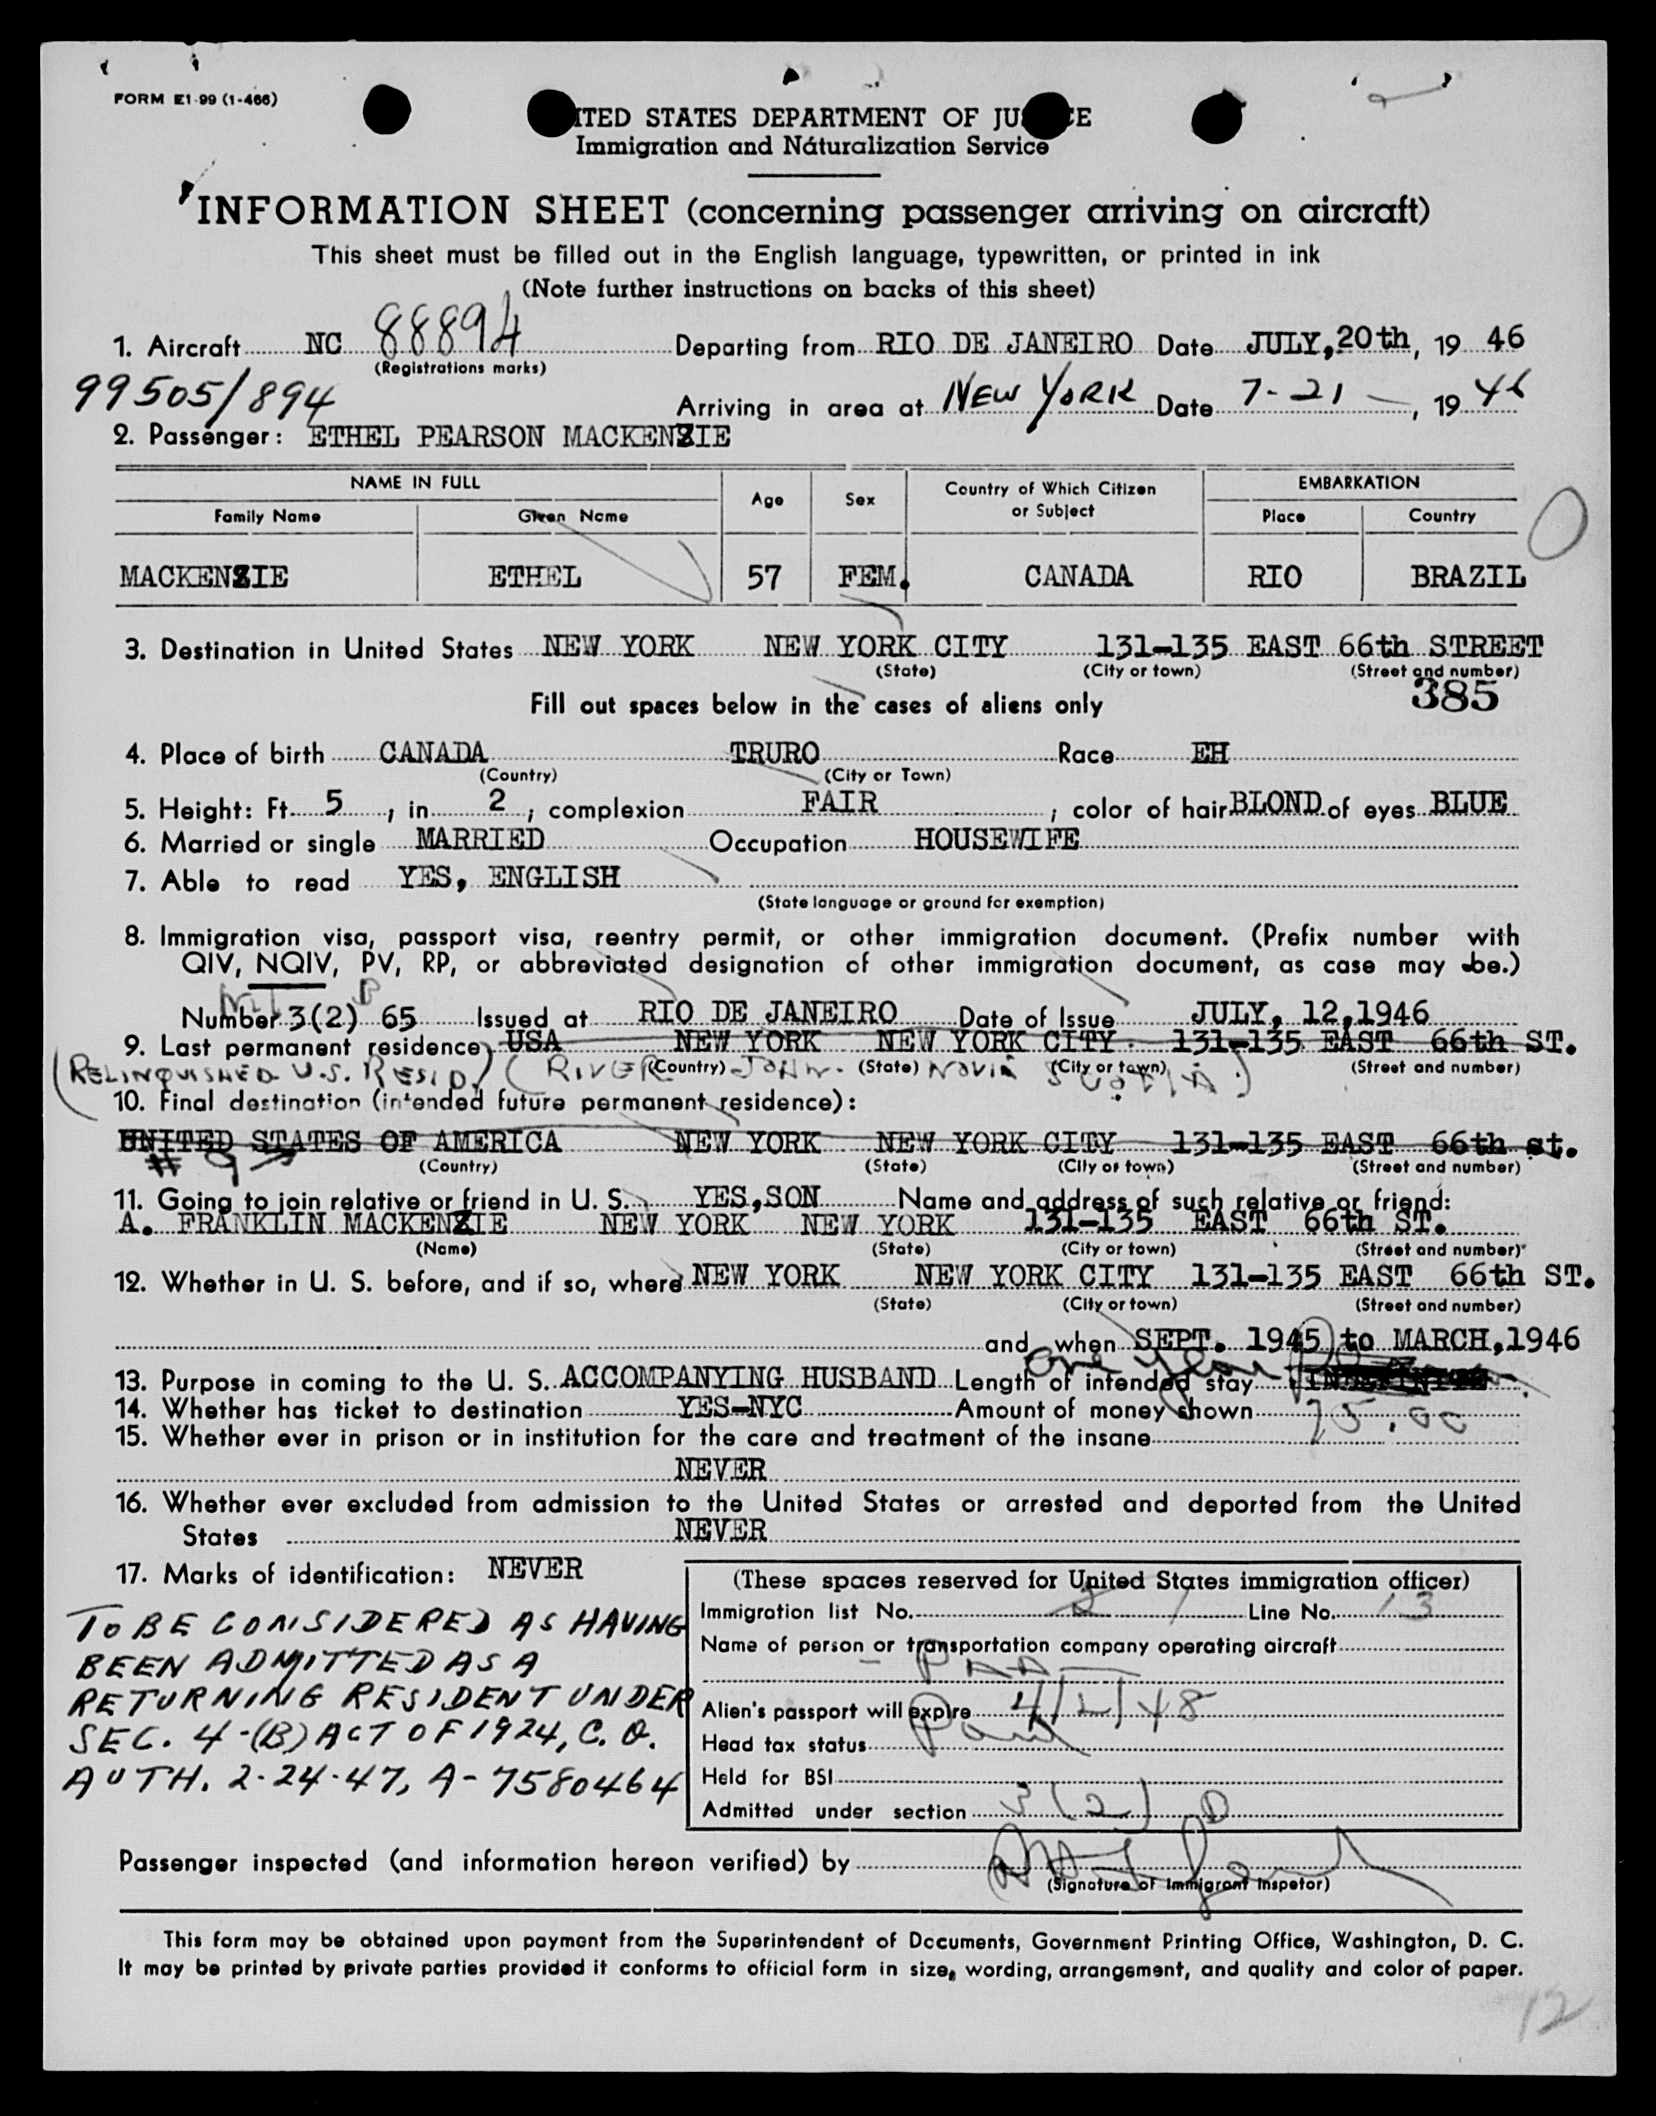 FORM E1-99 (1-466)
ITED STATES DEPARTMENT OF JU CE
Immigration and Naturalization Service
INFORMATION SHEET (concerning passenger arriving on aircraft)
This sheet must be filled out in the English language, typewritten, or printed in ink
(Note further instructions on backs of this sheet)
1. Aircraft NC 88894 Departing from RIO DE JANEIRO Date JULY, 20th, 19 46
(Registrations marks)
99505/894 Arriving in area at NEW YORK Date 7-21-, 19 46
2. Passenger: ETHEL PEARSON MACKENZIE
NAME IN FULL Age Sex Country of Which Citizen or Subject EMBARKATION
Family Name Given Name Place Country
MACKENZIE ETHEL 57 FEM. CANADA RIO BRAZIL
3. Destination in United States NEW YORK NEW YORK CITY 131-135 EAST 66th STREET
(State) (City or town) (Street and number)
385
Fill out spaces below in the cases of aliens only
4. Place of birth CANADA TRURO Race EH
(Country) (City or Town)
5. Height: Ft. 5, in. 2; complexion FAIR; color of hair BLOND of eyes BLUE
6. Married or single MARRIED Occupation HOUSEWIFE
7. Able to read YES, ENGLISH
(State language or ground for exemption)
8. Immigration visa, passport visa, reentry permit, or other immigration document. (Prefix number with
QIV, NQIV, PV, RP, or abbreviated designation of other immigration document, as case may be.)
Number 3(2) 65 Issued at RIO DE JANEIRO Date of Issue JULY, 12, 1946
9. Last permanent residence USA NEW YORK NEW YORK CITY. 131-135 EAST 66th ST.
(Country) (State) (City or town) (Street and number)
(RELINQUISHED U.S. RESID.) (RIVER JOHN. NOVIA SCOTIA.)
10. Final destination (intended future permanent residence):
UNITED STATES OF AMERICA NEW YORK NEW YORK CITY 131-135 EAST 66th st.
# 9
(Country) (State) (City or town) (Street and number)
11. Going to join relative or friend in U. S. YES, SON Name and address of such relative or friend:
A. FRANKLIN MACKENZIE NEW YORK NEW YORK 131-135 EAST 66th ST.
(Name) (State) (City or town) (Street and number)
12. Whether in U. S. before, and if so, where NEW YORK NEW YORK CITY 131-135 EAST 66th ST.
(State) (City or town) (Street and number)
and when SEPT. 1945 to MARCH, 1946
13. Purpose in coming to the U. S. ACCOMPANYING HUSBAND Length of intended stay one year
14. Whether has ticket to destination YES-NYC Amount of money shown 75.00
15. Whether ever in prison or in institution for the care and treatment of the insane
NEVER
16. Whether ever excluded from admission to the United States or arrested and deported from the United
States NEVER
17. Marks of identification: NEVER
TO BE CONSIDERED AS HAVING
BEEN ADMITTED AS A
RETURNING RESIDENT UNDER
SEC. 4-(B) ACT OF 1924, C. O.
AUTH. 2-24-47, A-7580464
(These spaces reserved for United States immigration officer)
Immigration list No. 2 1 Line No. 13
Name of person or transportation company operating aircraft
- PAA -
Alien's passport will expire 4/2/48
Head tax status Paid
Held for BSI
Admitted under section 3(2) D
Passenger inspected (and information hereon verified) by
(Signature of Immigrant Inspetor)
This form may be obtained upon payment from the Superintendent of Documents, Government Printing Office, Washington, D. C.
It may be printed by private parties provided it conforms to official form in size, wording, arrangement, and quality and color of paper.
12